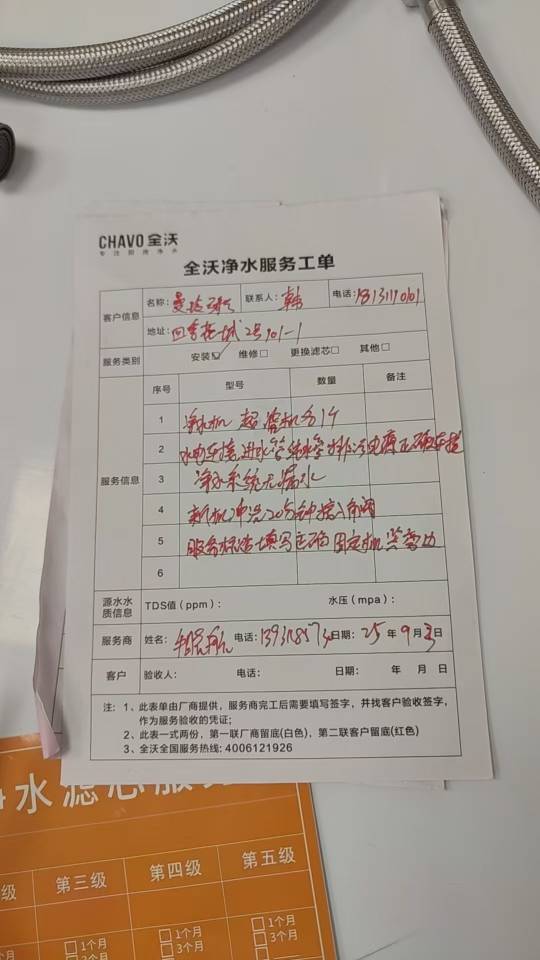 CHAVO 全沃
专注厨房净水
全沃净水服务工单
客户信息 名称: 联系人: 韩 电话:
地址: 2号101-1
服务类别 安装☑ 维修□ 更换滤芯□ 其他□
服务信息 序号 型号 数量 备注
1 净水机 超 机 台
2 水电连接 进水管 纯水管 排 电源正确连接
3 净水系统无漏水
4 新机冲洗20分钟接入
5 服务标 填写正确 固定机
6
源水水质信息 TDS值（ppm）: 水压（mpa）:
服务商 姓名: 电话: 日期: 25 年 9 月 3 日
客户 验收人: 电话: 日期: 年 月 日
注: 1、此表单由厂商提供，服务商完工后需要填写签字，并找客户验收签字，
作为服务验收的凭证;
2、此表一式两份，第一联厂商留底(白色)，第二联客户留底(红色)
3、全沃全国服务热线: 4006121926
水滤芯服
级 第三级 第四级 第五级
个月 □1个月 □1个月 □1个月
□3个月 □3个月 □3个月